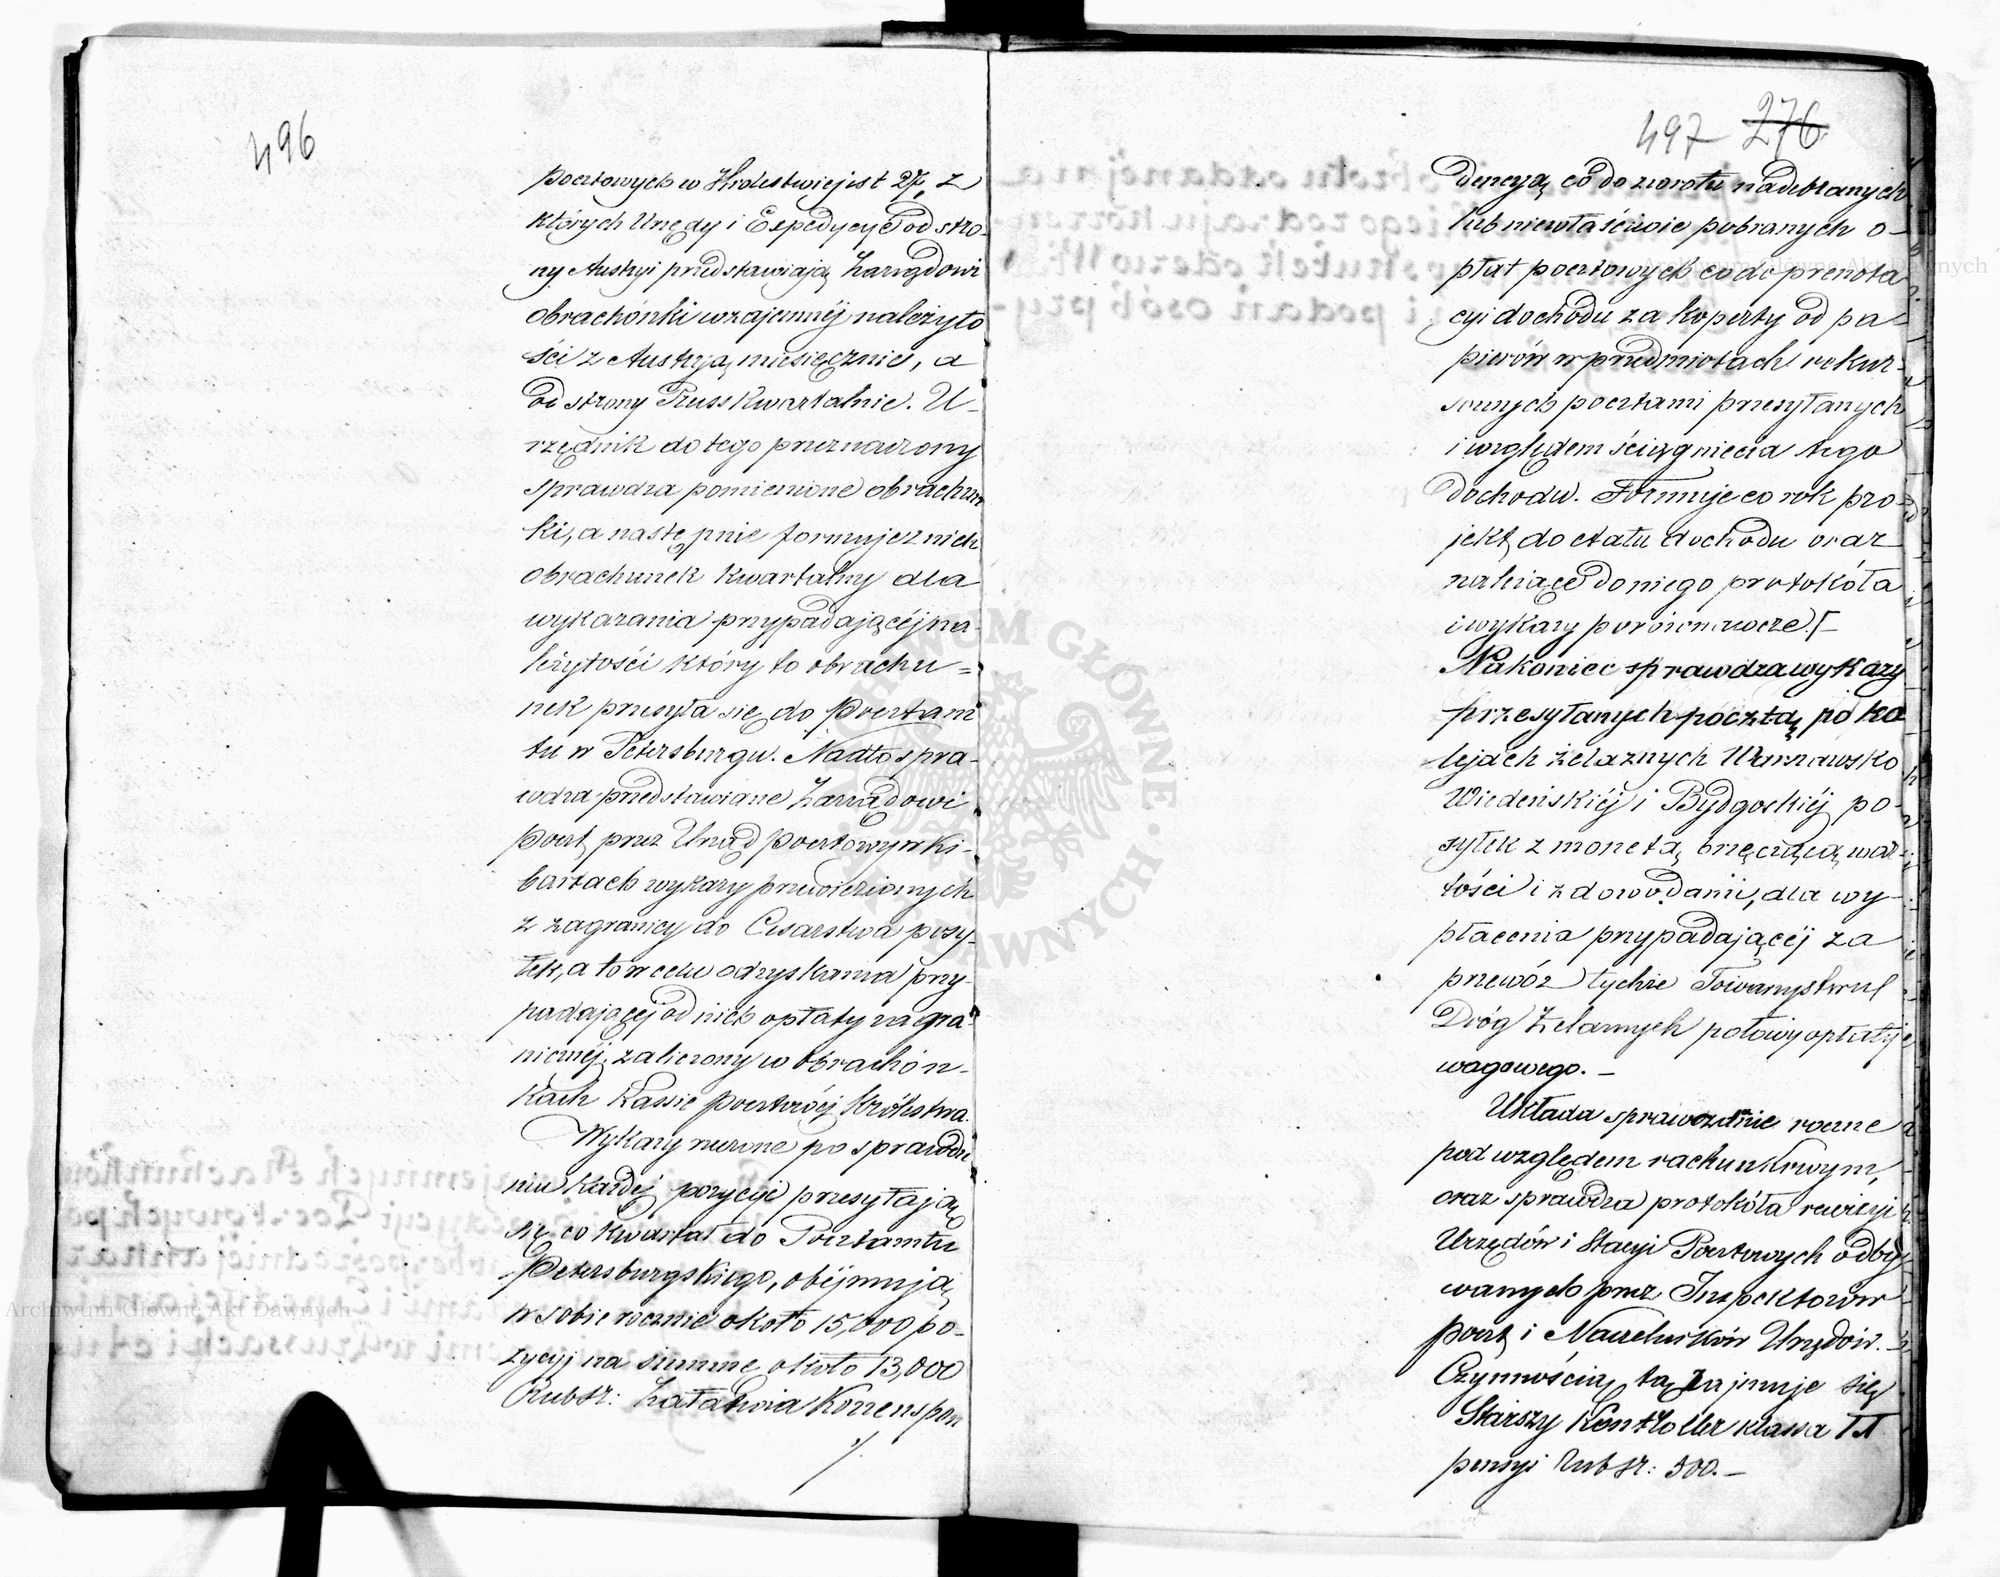 496
pocztowych w Królestwie jest 27, z
których Urzędy i Expedycye od stro-
ny Austryi przedstawiają Zarządowi
obrachónki wzajemnéj należyto
ści z Austryą miesięcznie, a
od strony Pruss kwartalnie. U-
rzędnik do tego przeznaczony
sprawdza pomienione obrachun
ki, a następnie formuje z nich
obrachunek kwartalny dla
wykazania przypadającéj na-
leżytości który to obrachu=
nek przesyła się do Pocztam
tu w Petersburgu. Nadto spra-
wdza przedstawiane Zarządowi
Poczt przez Urząd Pocztowy w Ki-
bartach wykazy przewiezionych
z zagranicy do Cesarstwa posy-
łek, a to w celu odzyskania przy-
padającéj od nich opłaty zagra-
nicznéj, zaliczony w obrachón-
kach Kassie Pocztowéj Królestwa.
Wykazy rzeczone po sprawdze
niu każdéj pozycyi przesyłają
się co kwartał do Pocztamtu
Petersburgskiego, obejmują
w sobie rocznie około 15,000 po-
zycyj na summę około 13,000
Rubsr: Załatwia Korrespon
./.
497 276
dencyą co do zwrotu nadebranych
lub niewłaściwie pobranych o-
płat pocztowych co do prenota
cyi dochodu za koperty od pa-
pierów w przedmiotach rekur-
sowych pocztami przesyłanych
i względem ściągnięcia tego
dochodu. Formuje co rok pro-
jekt do etatu dochodu oraz
należące do niego protokóła
i wykazy porównawcze.
Nakoniec sprawdza wykazy
przesyłanych pocztą po ko
lejach żelaznych Warszawsko
Wiedeńskiéj i Bydgoskiéj po-
syłek z monetą brzęczącą war-
tości i z dowodami, dla wy-
płacenia przypadającéj za
przewóz tychże Towarzystwu
Dróg Żelaznych połowy opłaty
wagowego. -
Układa sprawozdanie roczne
pod względem rachunkowym,
oraz sprawdza protokóła rewizyi
Urzędów i Stacyi Pocztowych odby
wanych przez Inspektorów
Poczt i Naczelników Urzędów.
Czynnością tą zajmuje się
Starszy Kontroller klassa II
pensyi Rubsr: 500. -
Archiwum Główne Akt Dawnych
Archiwum Główne Akt Dawnych
ARCHIWUM GŁÓWNE AKT DAWNYCH